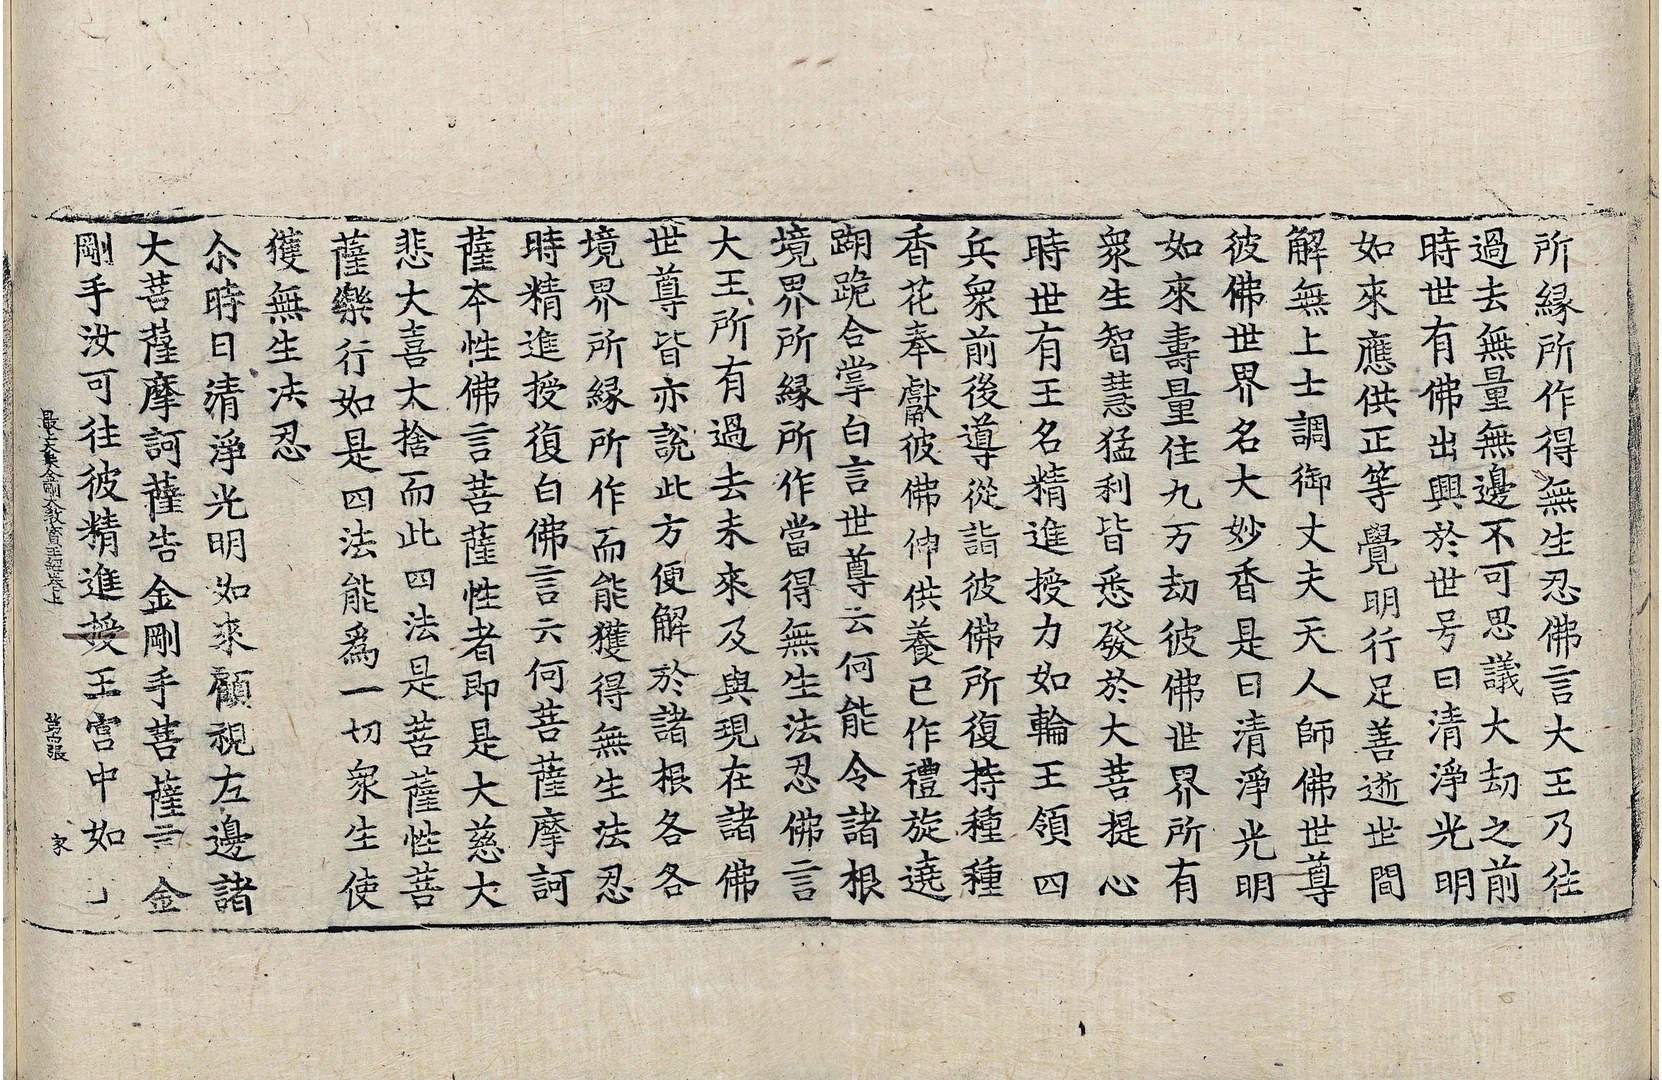 所縁所作得無生忍佛言大王乃往
過去無量無邊不可思議大劫之前
時世有佛出興於世号曰清淨光明
如來應供正等覺明行足善逝世間
解無上士調御丈夫天人師佛世尊
彼佛世界名大妙香是曰清淨光明
如來壽量住九万劫彼佛世界所有
衆生智慧猛利皆悉發於大菩提心
時世有王名精進授力如輪王領四
兵衆前後導從詣彼佛所復持種種
香花奉獻彼佛伸供養已作禮旋遶
踟跪合掌白言世尊云何能令諸根
境界所縁所作當得無生法忍佛言
大王所有過去未來及與現在諸佛
世尊皆亦說此方便解於諸根各各
境界所縁所作而能獲得無生法忍
時精進授復白佛言云何菩薩摩訶
薩本性佛言菩薩性者即是大慈大
悲大喜大捨而此四法是菩薩性菩
薩樂行如是四法能爲一切衆生使
獲無生法忍
尒時日清淨光明如來顧視左邊諸
大菩薩摩訶薩告金剛手菩薩言金
剛手汝可往彼精進授王宮中如
最上大集金剛大教寳王經卷上 張 家